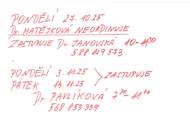 PONDĚLÍ 27.10.25
Dr. MATĚJKOVÁ NEORDINUJE
ZASTUPUJE Dr. JANOVSKÁ 10-14:00
588 819 573
PONDĚLÍ 3.11.25 ZASTUPUJE
PÁTEK 14.11.25
Dr. PAVLÍKOVÁ 7:30 - 11:00
568 853 339